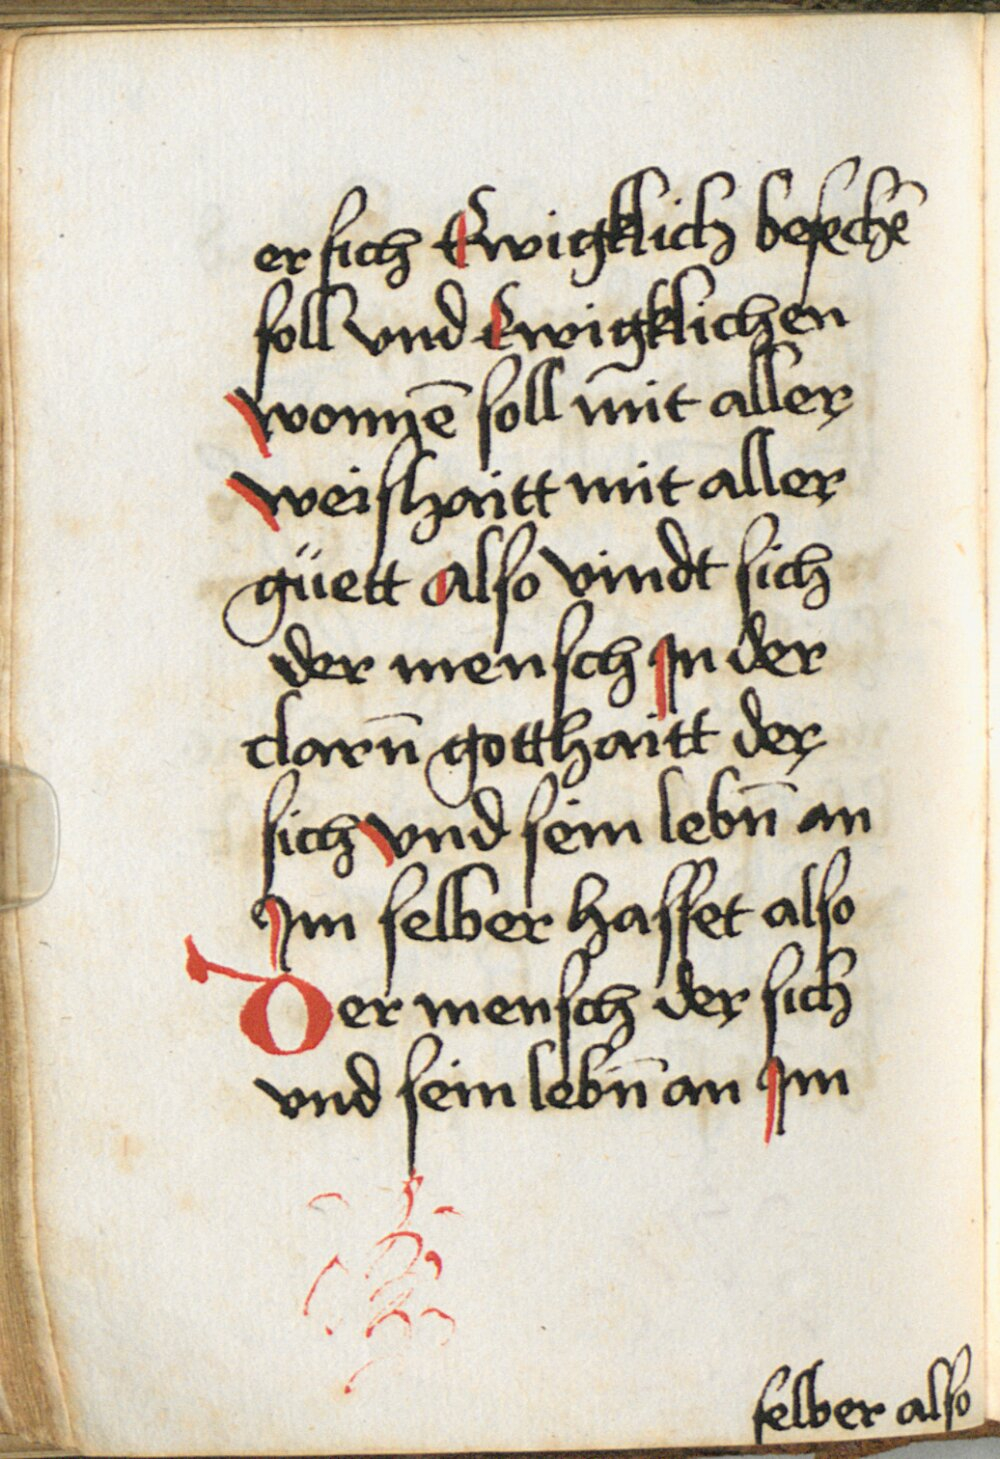 er sich Ewigklich besechē
soll vnd Ewigklichen
wonnē soll mit aller
weishaitt mit aller
güett also vindt sich
der mensch In der
clarn̄ gotthaitt der
sich vnd sein lebn̄ an
Im selber hasset also
Der mensch der sich
vnd sein lebn̄ an Im
selber also